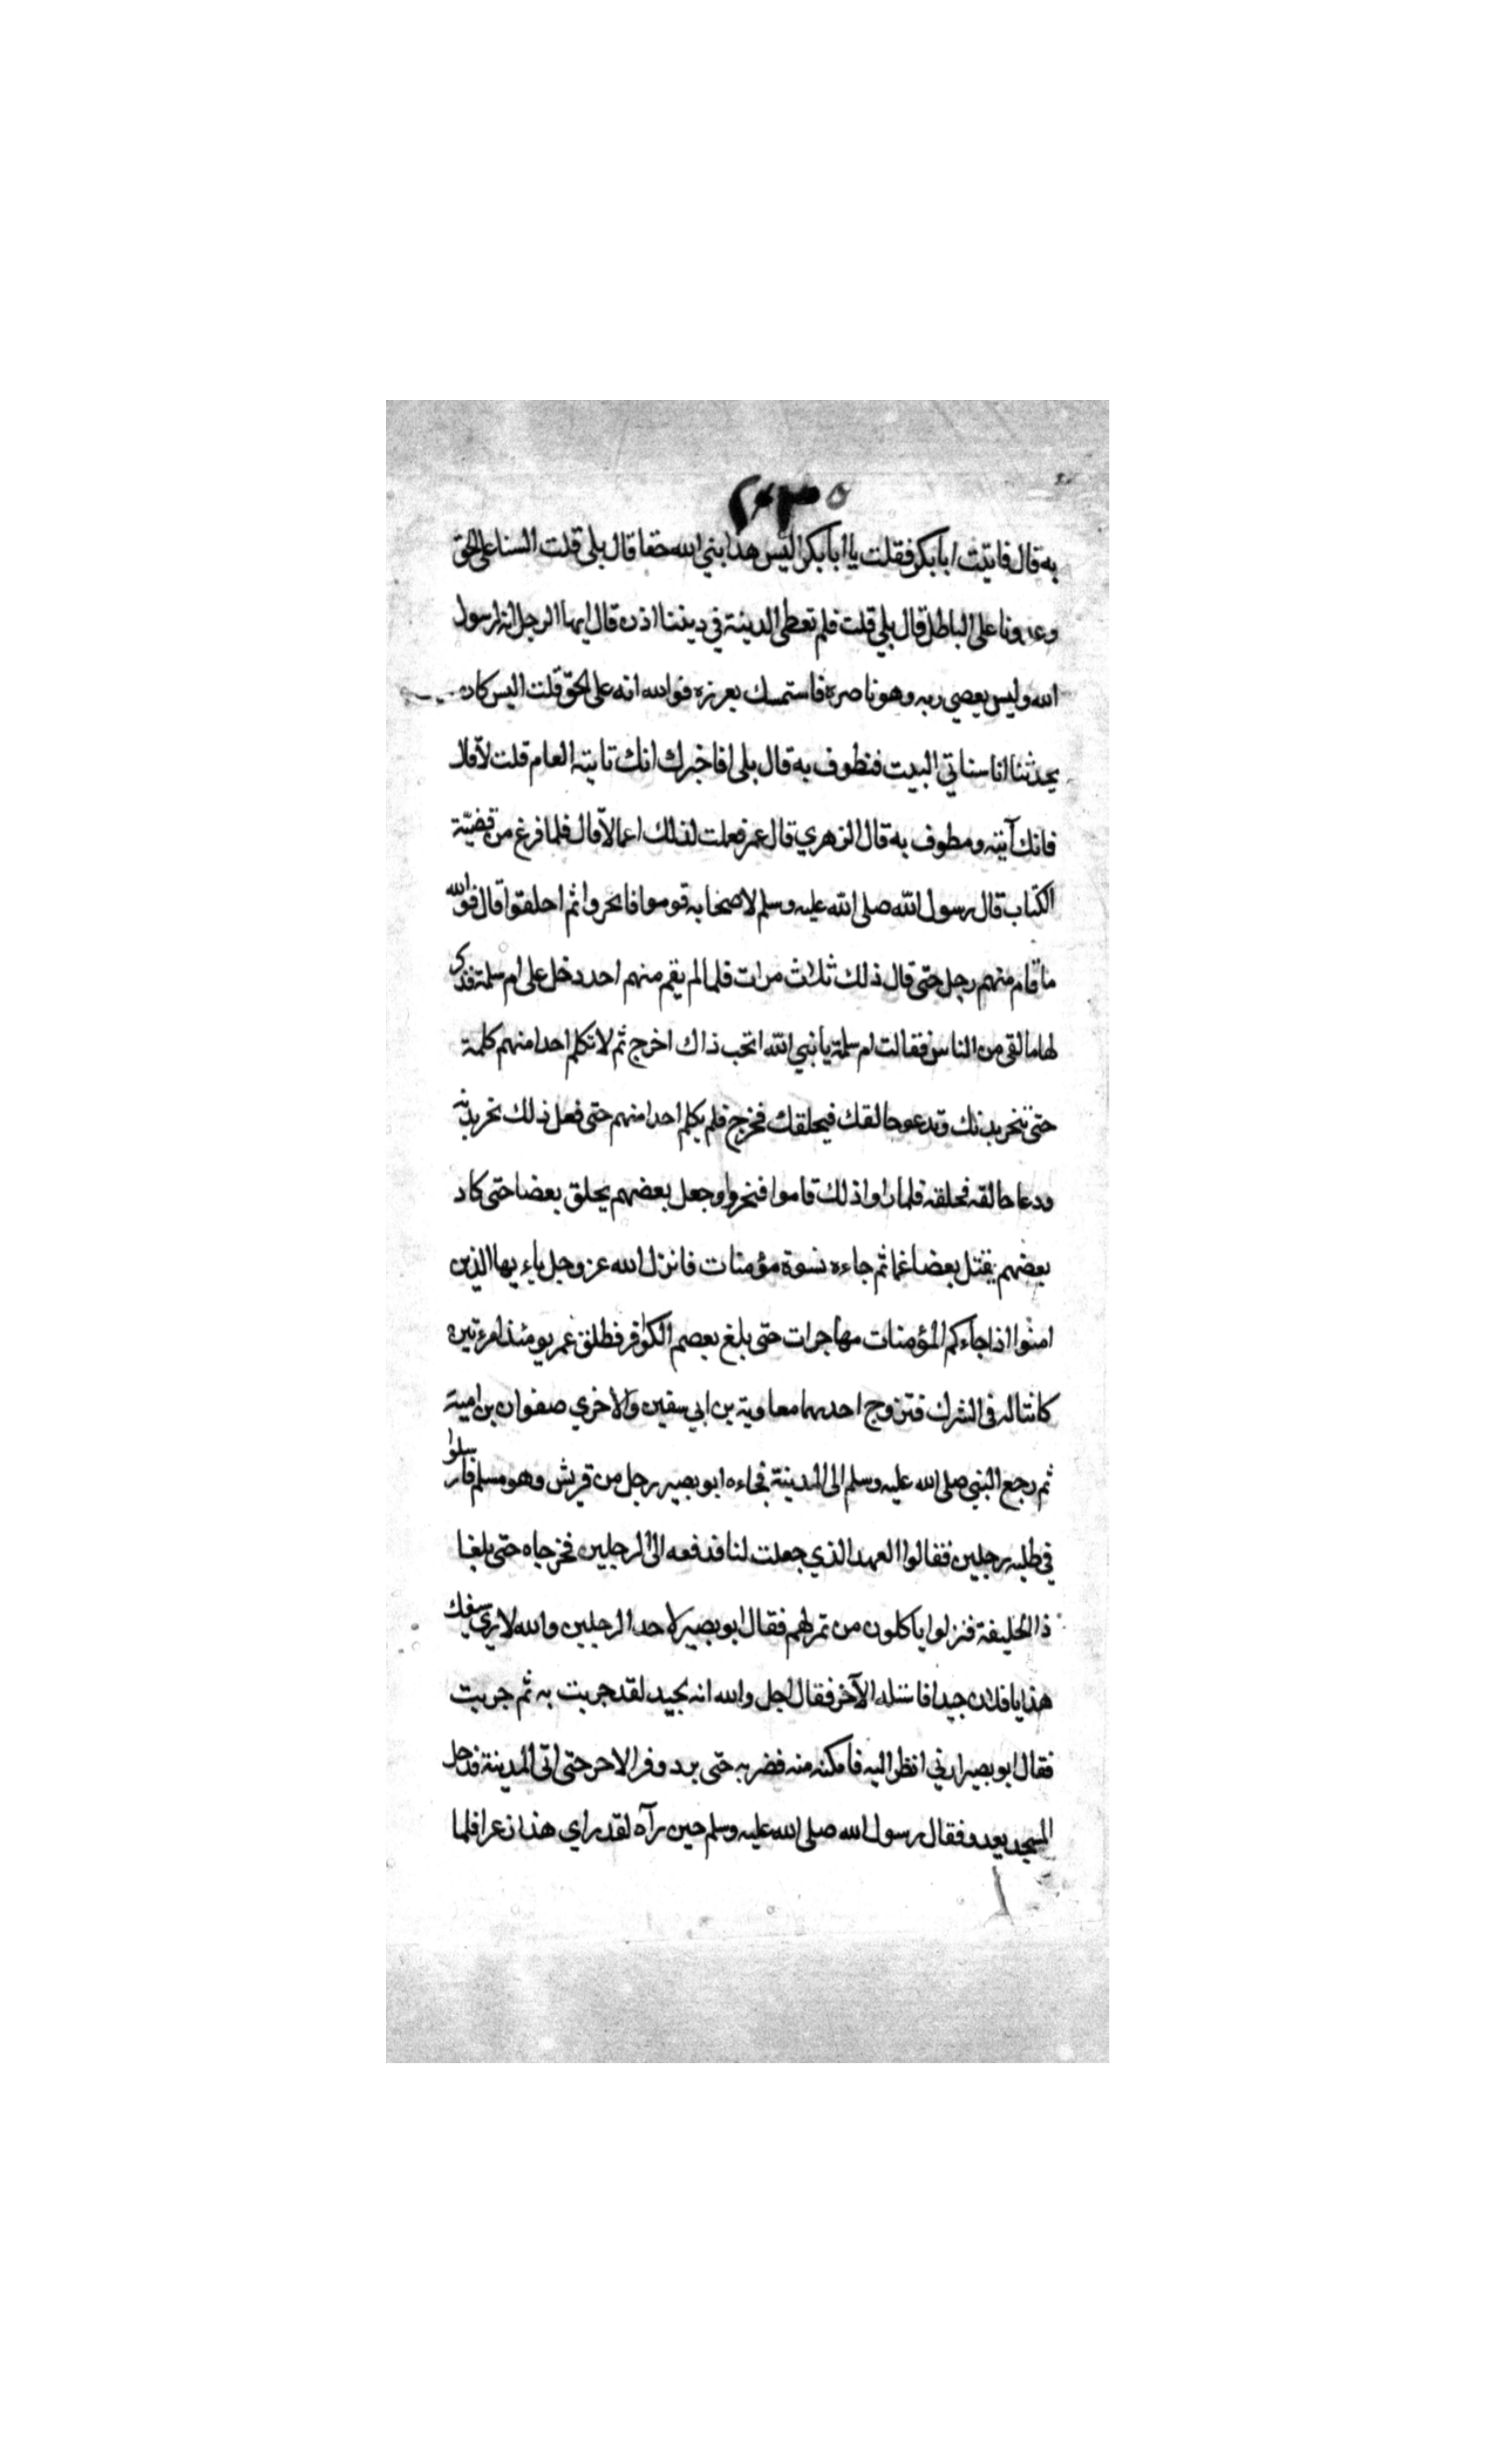 به قال فاتيت ابا بكر فقلت يا ابا بكر اليس هذا بني الله حقا قال بلى قلت السنا على الحق
وعدونا على الباطل قال بلي قلت فلم تعطى الدينة في ديننا اذن قال ايها الرجل انه لرسول
الله وليس يعصي ربه وهو ناصره فاستمسك بعرزه فوالله انه على الحق قلت اليس كان
يحدثنا انا سناتي البيت فنطوف به قال بلى افاخبرك انك تاتيه العام قلت لا قال
فانك آتيه ومطوف به قال الزهري قال عمر فعملت لذلك اعمالا قال فلما فرغ من قضيّة
الكتاب قال رسول الله صلى الله عليه وسلم لاصحابه قوموا فانحروا ثم احلقوا قال فوالله
ما قام منهم رجل حتى قال ذلك ثلاث مرات فلما لم يقم منهم احد دخل على ام سلمة فذكر
لها ما لقى من الناس فقالت ام سلمة يا نبي الله اتحب ذاك اخرج ثم لا تكلم احدا منهم كلمة
حتى تنحر بدنك وتدعو حالقك فيحلقك فخرج فلم يكلم احدا منهم حتى فعل ذلك نحر بدنه
ودعا حالقه فحلقه فلما راوا ذلك قاموا فنحروا وجعل بعضهم يحلق بعضا حتى كاد
بعضهم يقتل بعضا غما ثم جاءه نسوة مؤمنات فانزل الله عز وجل ياء يها الذين
امنوا اذا جاءكم المؤمنات مهاجرات حتى بلغ بعصم الكوافر فطلق عمر يومئذ امرءتين
كانتا له في الشرك فتزوج احديهما معاوية بن ابي سفين والاخري صفوان بن امية
ثم رجع النبي صلى الله عليه وسلم الى المدينة فجاءه ابو بصير رجل من قريش وهو مسلم فارسلوا
في طلبه رجلين فقالوا العهد الذي جعلت لنا فدفعه الى الرجلين فخرجاه حتى بلغا
ذا الحليفة فنزلوا ياكلون من تمر لهم فقال ابو بصير لاحد الرجلين والله لاري سيفك
هذا يا فلان جيدا فاستله الآخر فقال اجل والله انه لجيد لقد جربت به ثم جربت
فقال ابو بصير ارني انظر اليه فامكنه منه فضربه حتى برد وفر الاخر حتى اتى المدينة فدخل
المسجد يعدو فقال رسول الله صلى الله عليه وسلم حين رآه لقد راي هذا ذعرا فلما